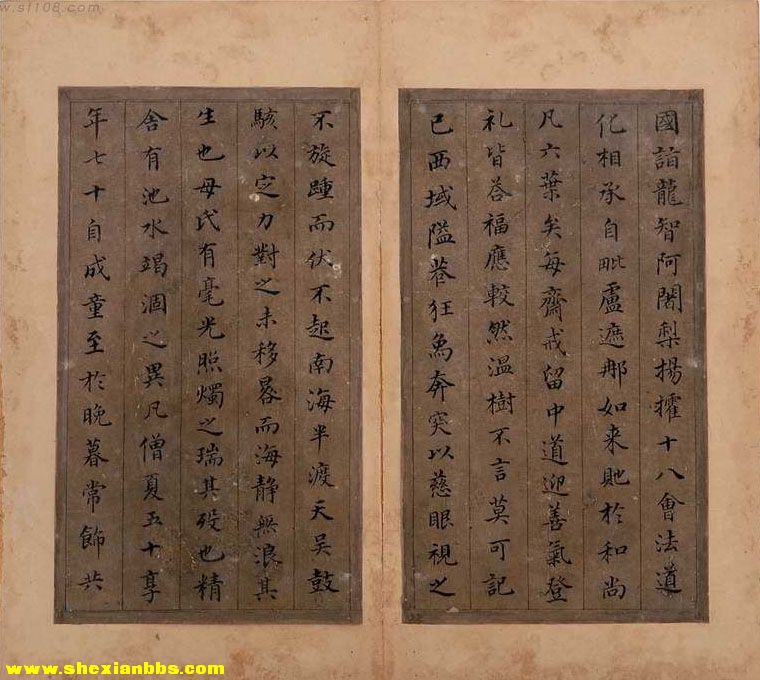 www.sf108.com
國詣龍智阿闍梨揚搉十八會法道
化相承自毗盧遮那如来貤於和尚
凡六葉矣每齋戒留中道迎善氣登
礼皆荅福應較然溫樹不言莫可記
已西域隘巷狂象奔突以慈眼視之
不旋踵而伏不起南海半渡天吴鼓
駭以定力對之未移晷而海静無浪其
生也母氏有毫光照燭之瑞其歿也精
舍有池水竭涸之異凡僧夏五十享
年七十自成童至於晚暮常飾共
www.shexianbbs.com